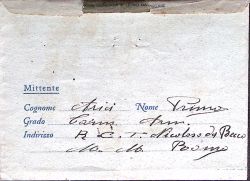 Mittente
Cognome Arisi Nome Primo
Grado Carr. Arm.
Indirizzo R. C. T. Nicoloso da Recco
M. M. Roma